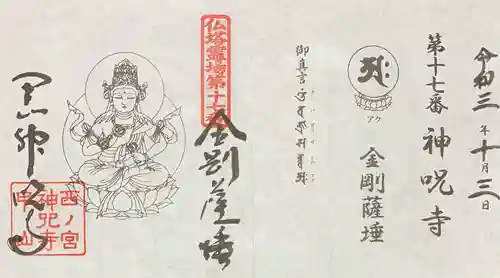 令和三年十月三日
第十七番 神呪寺
アク
金剛薩埵
御真言
仏塔霊場第十七番
金剛薩埵
西ノ宮
神呪寺
甲山